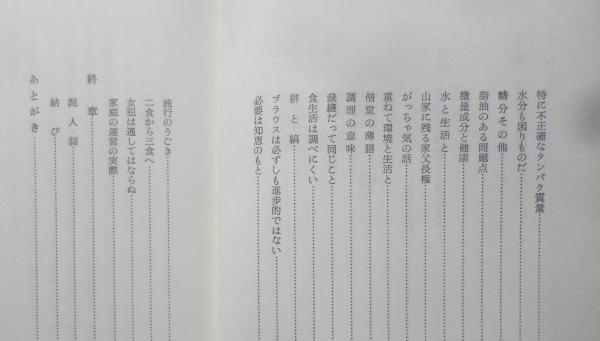 特に不正確なタンパク質量
水分も困りものだ
糖分その他
脂油のある問題点
微量成分と健康
水と生活と
山家に残る家父長権
がっちゃ気の話
重ねて環境と生活と
僧堂の薄膳
調理の意味
裁縫だって同じこと
食生活は調べにくい
絣と縞
ブラウスは必ずしも進歩的ではない
必要は知恵のもと
流行のうごき
二食から三食へ
女犯は通してはならぬ
家庭の運営の実際
終章
泥人洞
結び
あとがき